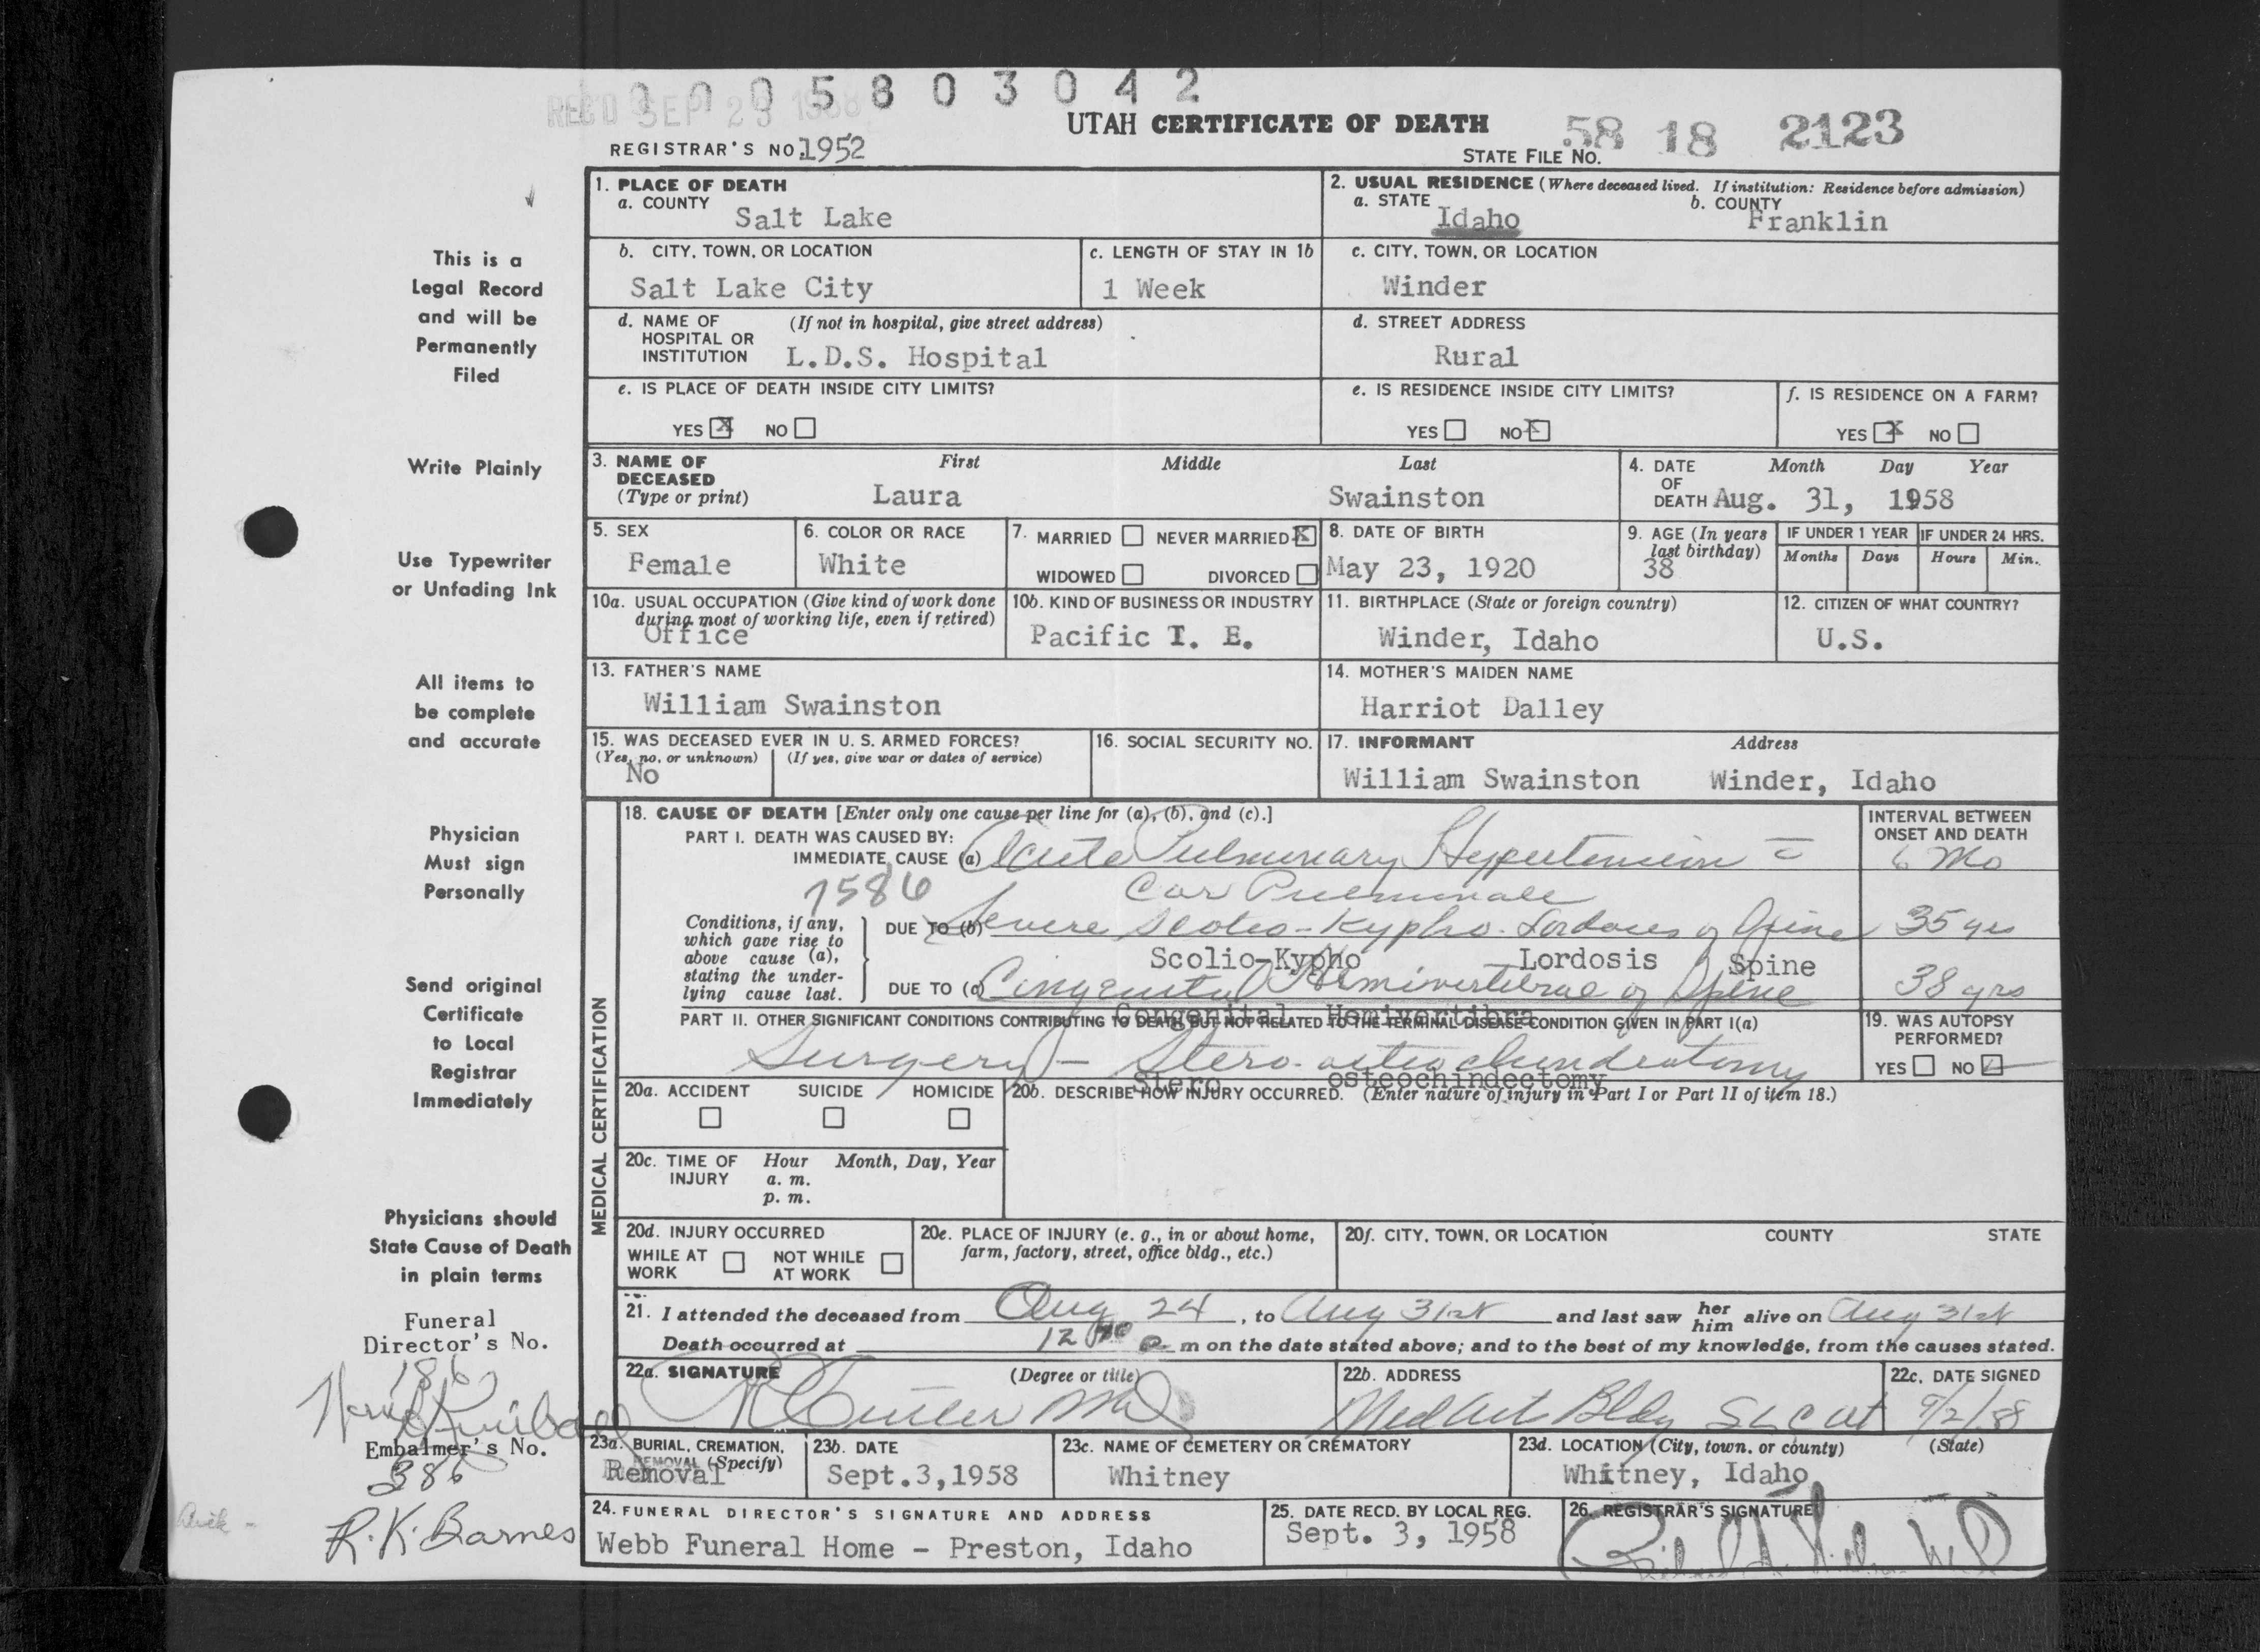 0005803042
REC'D SEP 29 1958
UTAH CERTIFICATE OF DEATH
58 18 2123
REGISTRAR'S NO. 1952
STATE FILE NO.
1. PLACE OF DEATH
a. COUNTY
Salt Lake
2. USUAL RESIDENCE (Where deceased lived. If institution: Residence before admission)
a. STATE
Idaho
b. COUNTY
Franklin
This is a
Legal Record
and will be
Permanently
Filed
b. CITY, TOWN, OR LOCATION
Salt Lake City
c. LENGTH OF STAY IN 1b
1 Week
c. CITY, TOWN, OR LOCATION
Winder
d. NAME OF (If not in hospital, give street address)
HOSPITAL OR
INSTITUTION L.D.S. Hospital
d. STREET ADDRESS
Rural
e. IS PLACE OF DEATH INSIDE CITY LIMITS?
YES X NO
e. IS RESIDENCE INSIDE CITY LIMITS?
YES NO X
f. IS RESIDENCE ON A FARM?
YES X NO
Write Plainly
3. NAME OF First Middle Last
DECEASED
(Type or print) Laura Swainston
4. DATE Month Day Year
OF
DEATH Aug. 31, 1958
Use Typewriter
or Unfading Ink
5. SEX
Female
6. COLOR OR RACE
White
7. MARRIED NEVER MARRIED X
WIDOWED DIVORCED
8. DATE OF BIRTH
May 23, 1920
9. AGE (In years
last birthday)
38
IF UNDER 1 YEAR
Months Days
IF UNDER 24 HRS.
Hours Min.
10a. USUAL OCCUPATION (Give kind of work done
during most of working life, even if retired)
Office
10b. KIND OF BUSINESS OR INDUSTRY
Pacific I. E.
11. BIRTHPLACE (State or foreign country)
Winder, Idaho
12. CITIZEN OF WHAT COUNTRY?
U.S.
All items to
be complete
and accurate
13. FATHER'S NAME
William Swainston
14. MOTHER'S MAIDEN NAME
Harriot Dalley
15. WAS DECEASED EVER IN U. S. ARMED FORCES?
(Yes, no, or unknown) (If yes, give war or dates of service)
No
16. SOCIAL SECURITY NO.
17. INFORMANT Address
William Swainston Winder, Idaho
Physician
Must sign
Personally
MEDICAL CERTIFICATION
18. CAUSE OF DEATH [Enter only one cause per line for (a), (b), and (c).]
PART I. DEATH WAS CAUSED BY:
IMMEDIATE CAUSE (a) Acute Pulmonary Hypertension
7586 Cor Pulmonale
INTERVAL BETWEEN
ONSET AND DEATH
6 Mo
Conditions, if any,
which gave rise to
above cause (a),
stating the under-
lying cause last.
DUE TO (b) Severe Scolio-Kypho-Lordosis of Spine 35 yrs
Scolio-Kypho Lordosis Spine
DUE TO (c) Congenital Hemivertebrae of Spine 38 yrs
Congenital Hemivertibra
Send original
Certificate
to Local
Registrar
Immediately
PART II. OTHER SIGNIFICANT CONDITIONS CONTRIBUTING TO DEATH BUT NOT RELATED TO THE TERMINAL DISEASE CONDITION GIVEN IN PART I(a)
Surgery - Stero-osteochondrotomy
Stero osteochindectomy
19. WAS AUTOPSY
PERFORMED?
YES NO
20a. ACCIDENT SUICIDE HOMICIDE
20b. DESCRIBE HOW INJURY OCCURRED. (Enter nature of injury in Part I or Part II of item 18.)
20c. TIME OF Hour Month, Day, Year
INJURY a. m.
p. m.
Physicians should
State Cause of Death
in plain terms
20d. INJURY OCCURRED
WHILE AT NOT WHILE
WORK AT WORK
20e. PLACE OF INJURY (e. g., in or about home,
farm, factory, street, office bldg., etc.)
20f. CITY, TOWN, OR LOCATION COUNTY STATE
21. I attended the deceased from Aug 24, to Aug 31st and last saw her him alive on Aug 31st
Death occurred at 12 m on the date stated above; and to the best of my knowledge, from the causes stated.
Funeral
Director's No.
186
Kimball
22a. SIGNATURE (Degree or title)
MD
22b. ADDRESS
Med Art Bldg SLC Ut
22c. DATE SIGNED
9/2/58
Embalmer's No.
386
R.K. Barnes
23a. BURIAL, CREMATION,
REMOVAL (Specify)
Removal
23b. DATE
Sept.3,1958
23c. NAME OF CEMETERY OR CREMATORY
Whitney
23d. LOCATION (City, town, or county) (State)
Whitney, Idaho
24. FUNERAL DIRECTOR'S SIGNATURE AND ADDRESS
Webb Funeral Home - Preston, Idaho
25. DATE RECD. BY LOCAL REG.
Sept. 3, 1958
26. REGISTRAR'S SIGNATURE